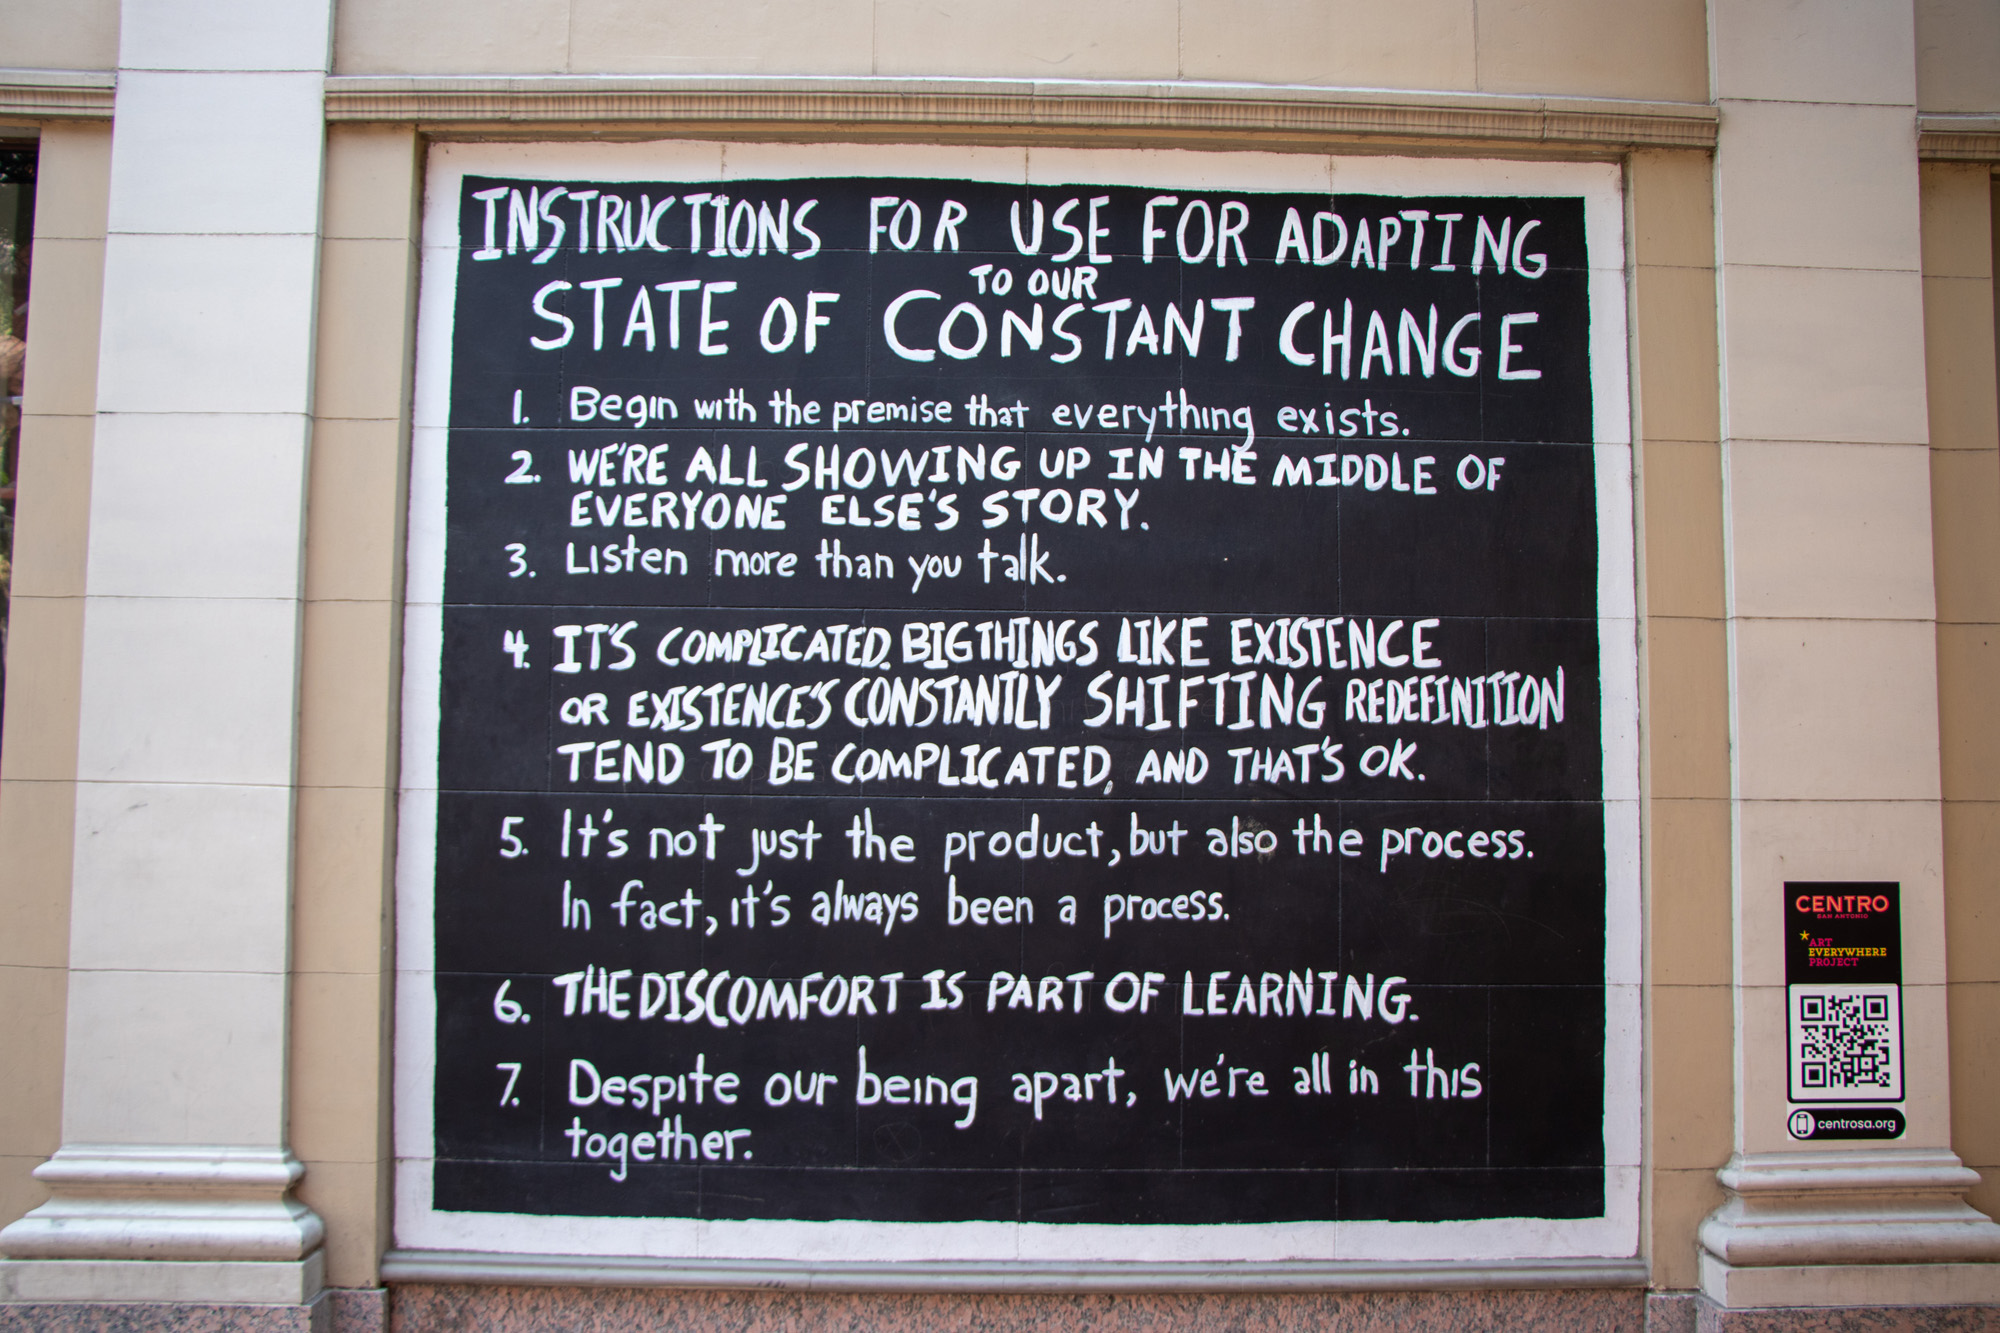 INSTRUCTIONS FOR USE FOR ADAPTING
TO OUR
STATE OF CONSTANT CHANGE
1. Begin with the premise that everything exists.
2. WE'RE ALL SHOWING UP IN THE MIDDLE OF
EVERYONE ELSE'S STORY.
3. Listen more than you talk.
4. IT'S COMPLICATED. BIG THINGS LIKE EXISTENCE
OR EXISTENCE'S CONSTANTLY SHIFTING REDEFINITION
TEND TO BE COMPLICATED, AND THAT'S OK.
5. It's not just the product, but also the process.
In fact, it's always been a process.
6. THE DISCOMFORT IS PART OF LEARNING.
7. Despite our being apart, we're all in this
together.
CENTRO
SAN ANTONIO
*ART
EVERYWHERE
PROJECT
centrosa.org